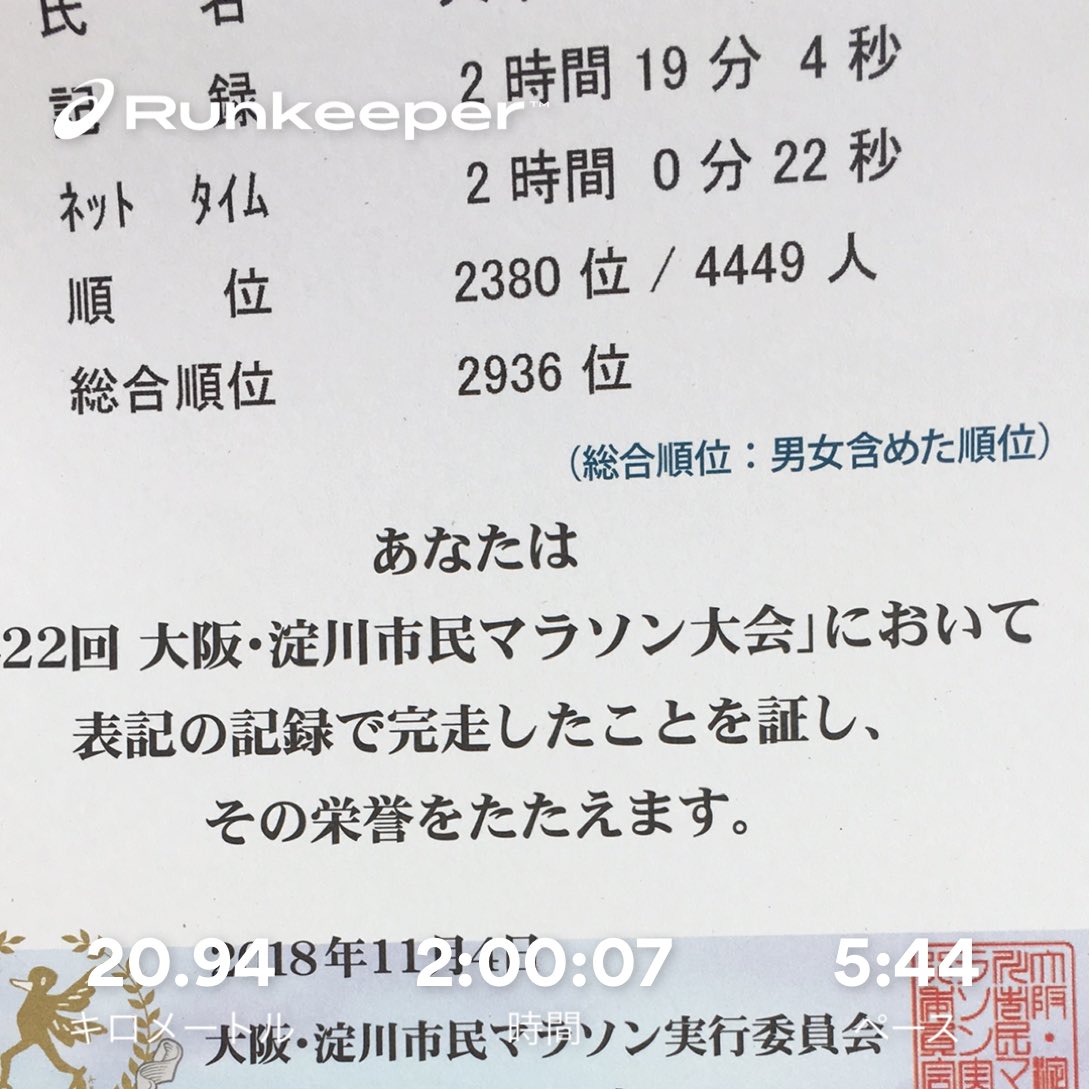 氏 名
記 録 2 時間 19 分 4 秒
Runkeeper™
ネット タイム 2 時間 0 分 22 秒
順 位 2380 位 / 4449 人
総合順位 2936 位
(総合順位：男女含めた順位)
あなたは
22回 大阪・淀川市民マラソン大会」において
表記の記録で完走したことを証し、
その栄誉をたたえます。
2018年11月4日
20.94 2:00:07 5:44
キロメートル 時間 ペース
大阪・淀川市民マラソン実行委員会